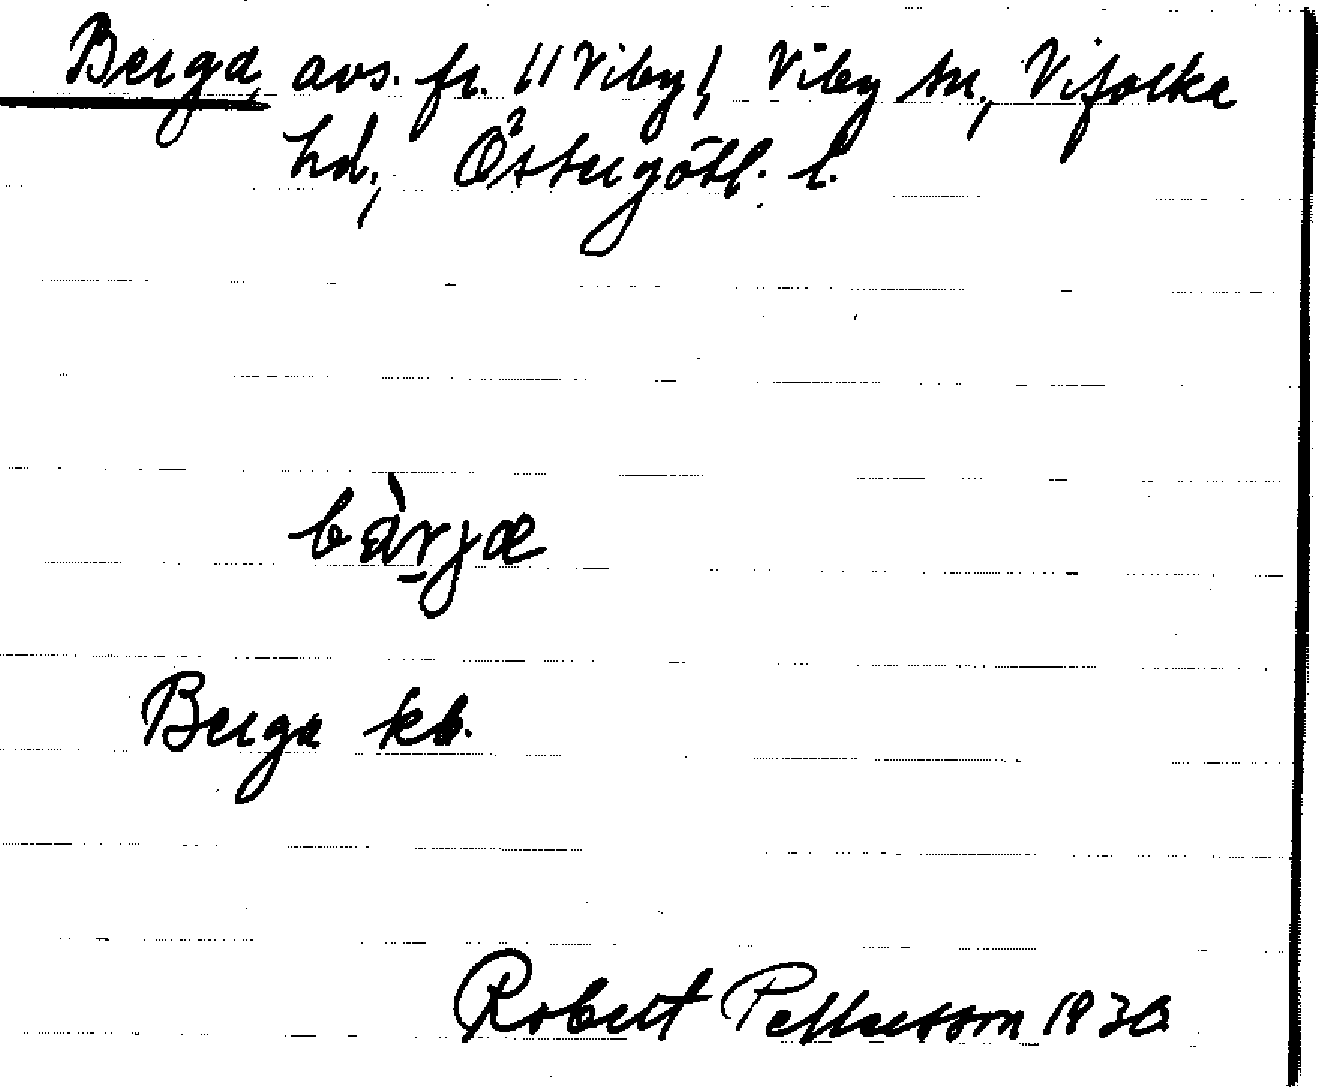 Berga, avs. fr. 1/1 Viby 1, Viby sn., Vifolka
hd., Östergötl. l.
bàrjæ
Berga kb.
Robert Pettersson 1930